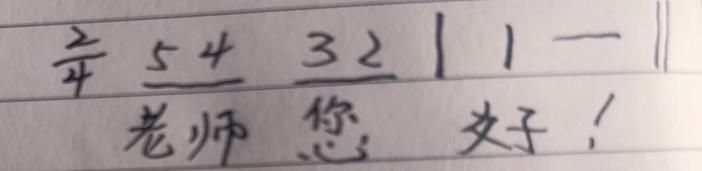 2/4 5 4 3 2 | 1 — ‖
老师 您 好！